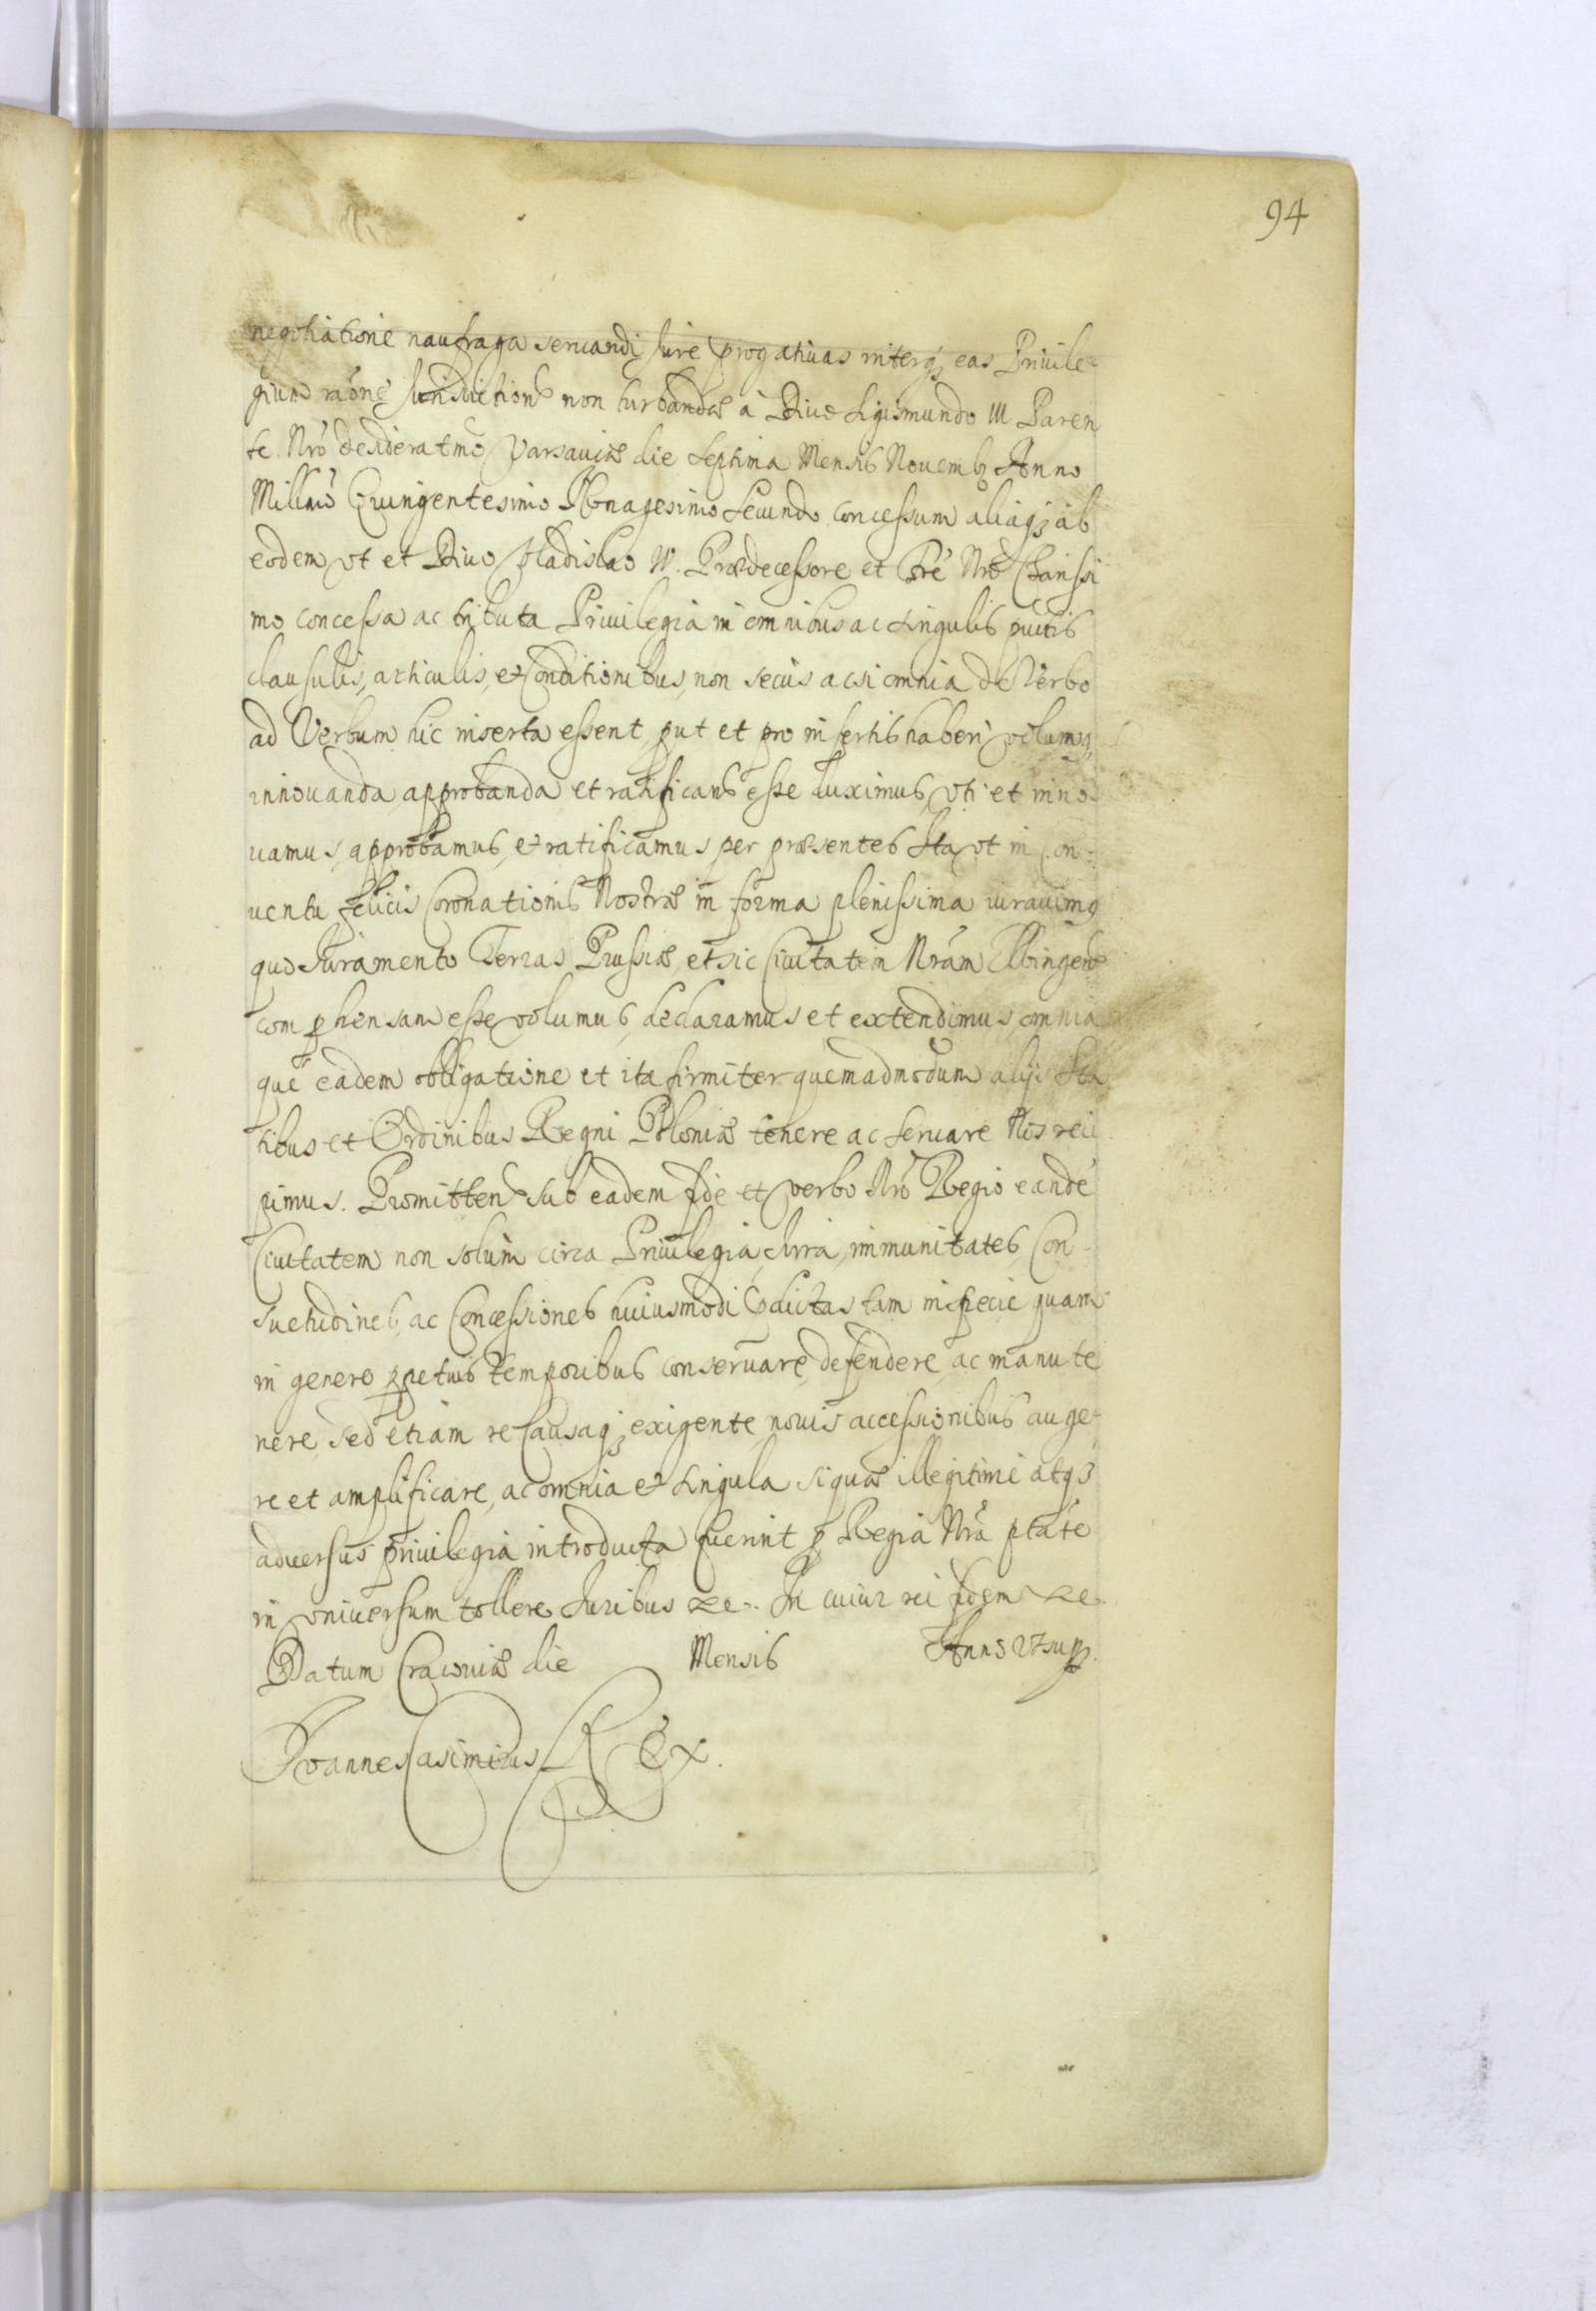 94
negotiatione naufraga seruandi, Jure progatiuas interq; eas Priuile-
gium raõne Jurisdictionis non turbandæ à Diuo Sigismundo III Paren
te Nrõ desideratmõ Varsauiæ die Septima Mensis Nouemb Anno
Millmõ Quingentesimo Nonagesimo Secundo concessum aliaq; ab
eodem vt et Diuo Vladislao IV. Prædecessore et Fre Nrõ Charissi
mo concessa ac tributa Priuilegia in omnibus ac singulis puctis
clausulis, articulis, et Conditionibus, non secus ac si omnia de Verbo
ad Verbum hic inserta essent, put et pro insertis haberi volumq,
innouanda, approbanda et ratificanda esse duximus, vti et inno
uamus, approbamus, et ratificamus per præsentes Ita vt in Con-
uentu felicis Coronationis Nostræ in forma plenissima iurauimq
quo Juramento Terras Prussiæ, et sic Ciuitatem Nrãm Elbingens
comphensam esse volumus, declaramus et extendimus, omnia
que eadem obligatione et ita firmiter quemadmodum alijs Sta
tibus et Ordinibus Regni Poloniæ tenere ac seruare Nos reci
pimus. Promitten sub eadem fide et verbo Nrõ Regio eandẽ
Ciuitatem non solum circa Priuilegia, Jura, immunitates, Con-
suetudines, ac Concessiones huiusmodi pdictas tam in specie quam
in genere ppetuis temporibus conseruare, defendere ac manute
nere, sed etiam re Causaq; exigente nouis accessionibus auge-
re et amplificare, ac omnia et singula siquæ illegitime atq3
aduersus priuilegia introducta fuerint p Regia Nrã ptate
in vniuersum tollere Juribus &c. In cuius rei fidem &c.
Datum Cracouiæ die Mensis Anno vt sup.
Joannes Casimirus Rex.